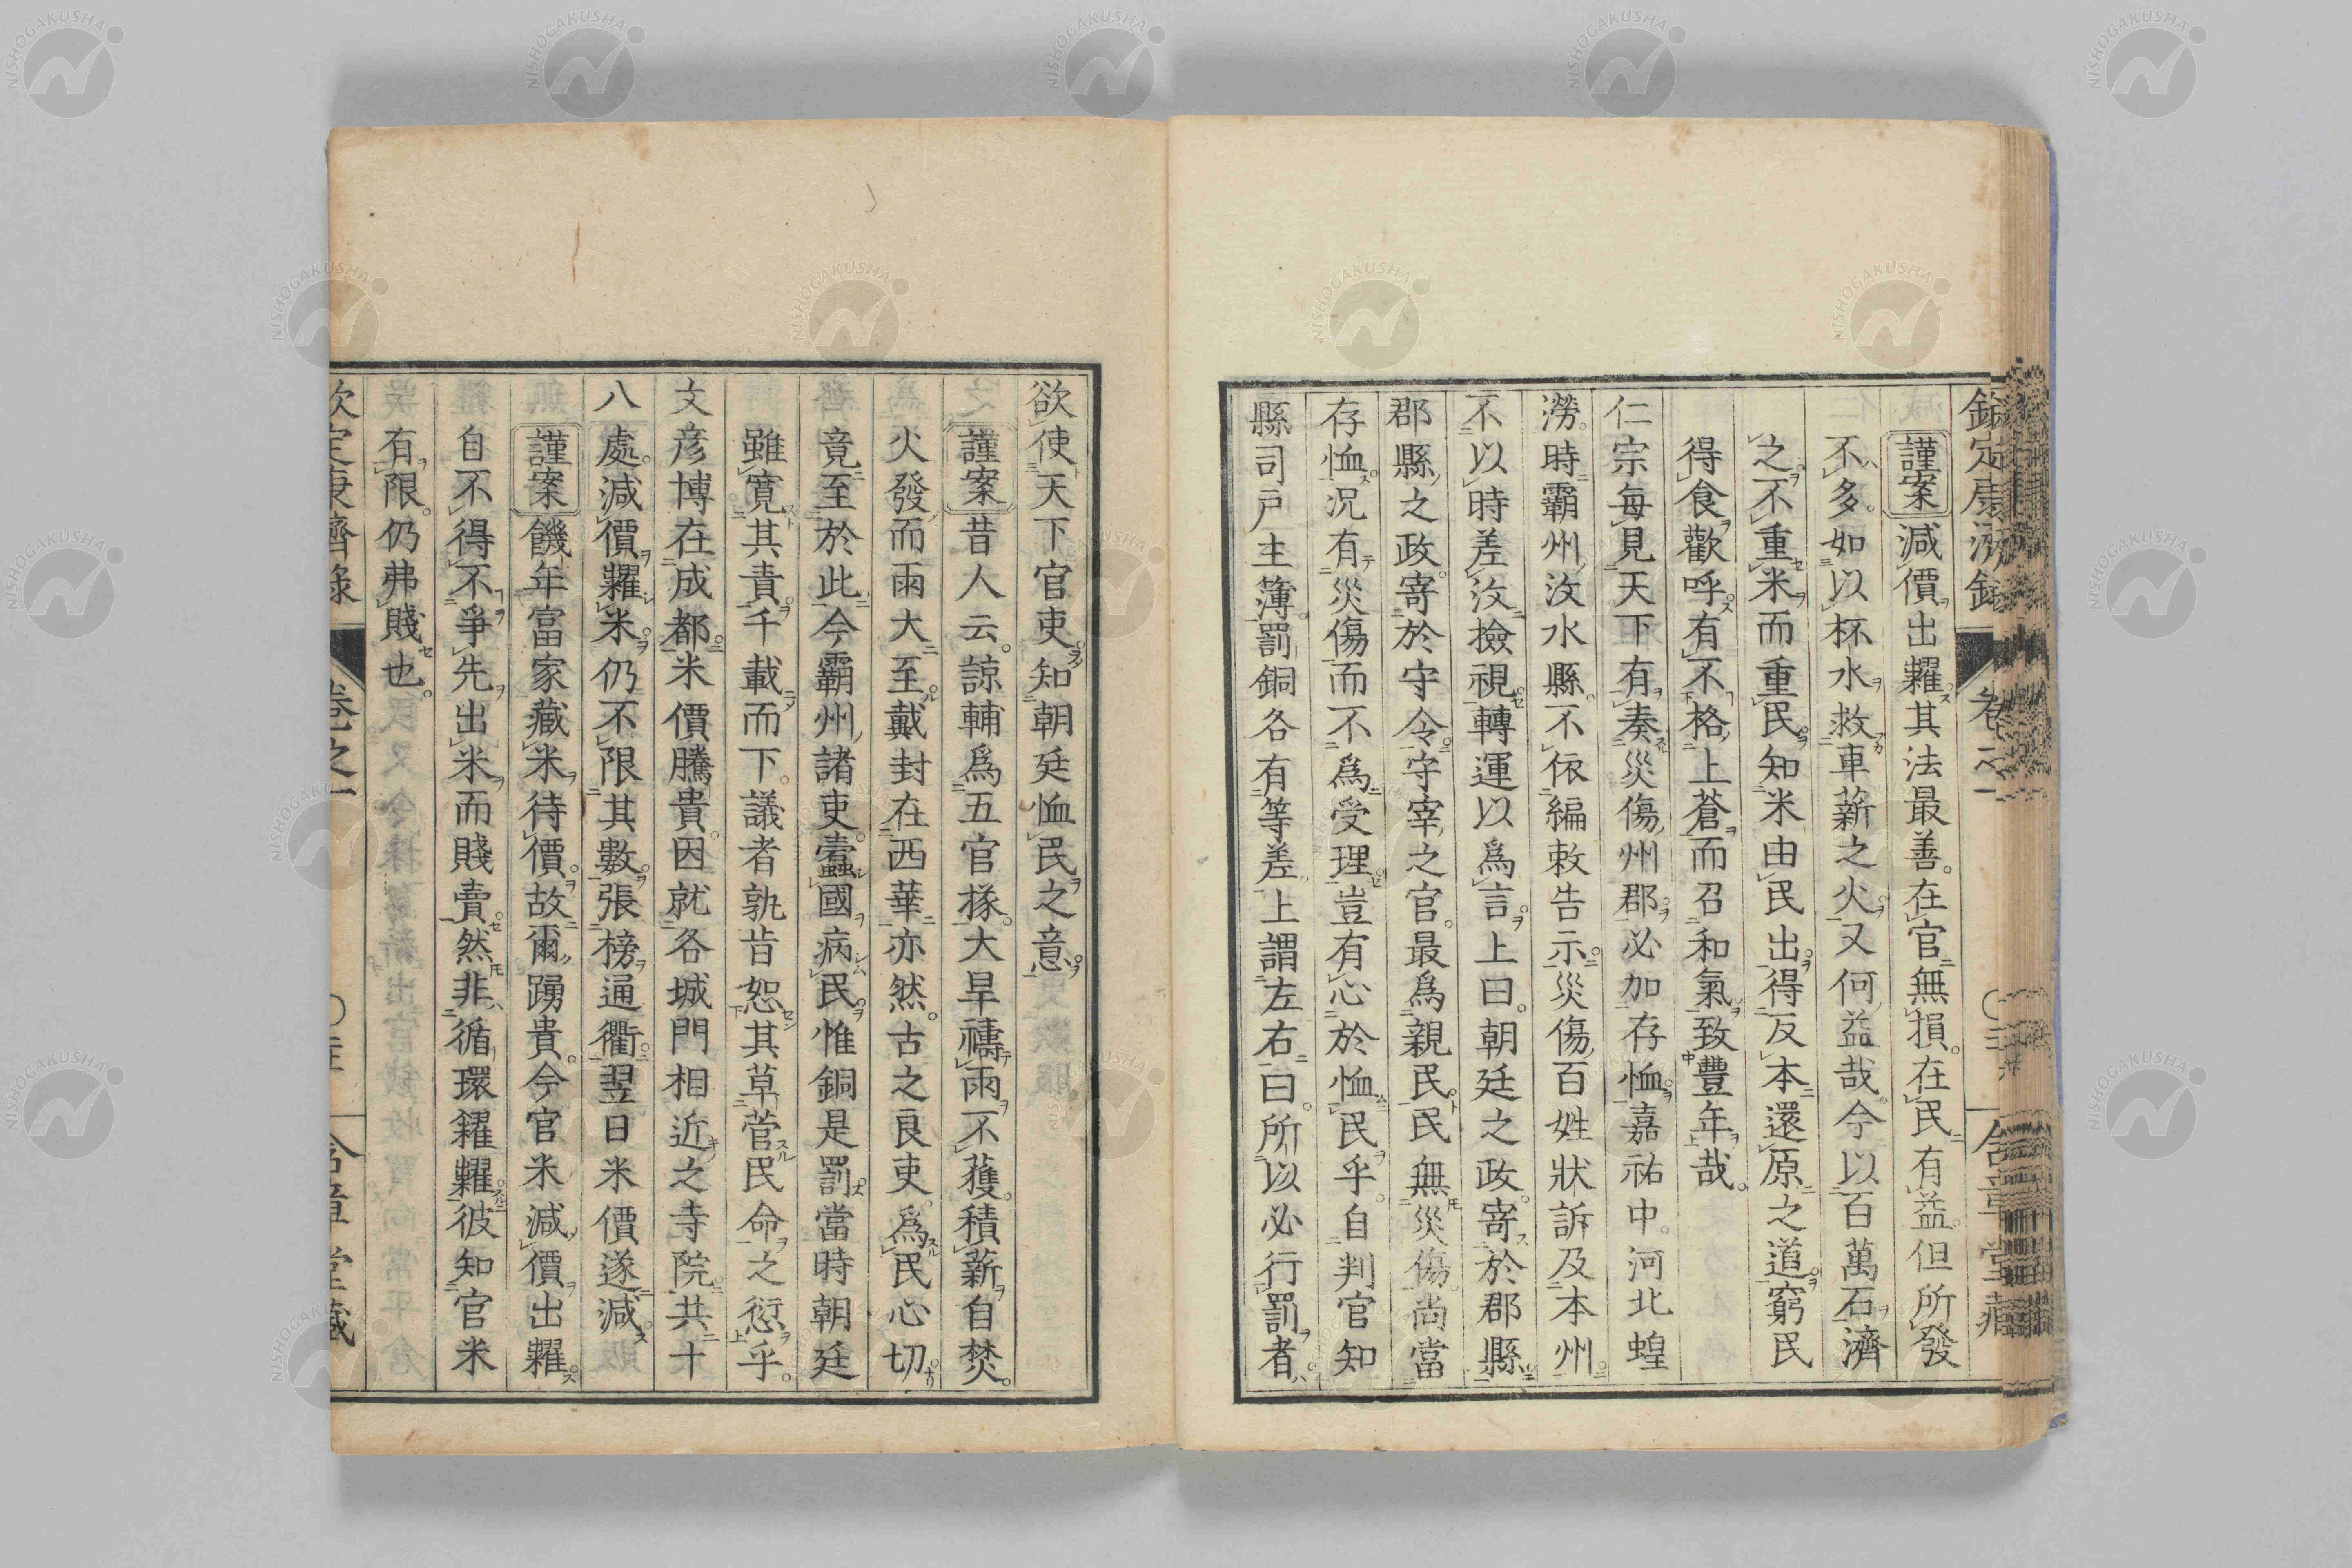 謹案減價出糶其法最善在官無損在民有益但所發
不多如以杯水救車薪之火又何益哉今以百萬石濟
之不重米而重民知米由民出得反本還原之道窮民
得食歡呼有不格上蒼而召和氣致豐年哉
仁宗每見天下有奏災傷州郡必加存恤嘉祐中河北蝗
澇時霸州汶水縣不依編敕告示災傷百姓狀訴及本州
不以時差汶檢視轉運以為言上曰朝廷之政寄於郡縣
郡縣之政寄於守令守宰之官最為親民民無災傷尚當
存恤況有災傷而不為受理豈有心於恤民乎自判官知
縣司戶主簿罰銅各有等差上謂左右曰所以必行罰者
欲使天下官吏知朝廷恤民之意
謹案昔人云諒輔為五官掾大旱禱雨不獲積薪自焚
火發而雨大至戴封在西華亦然古之良吏為民心切
竟至於此今霸州諸吏蠹國病民惟銅是罰當時朝廷
雖寬其責千載而下議者孰肯恕其草菅民命之愆乎
文彥博在成都米價騰貴因就各城門相近之寺院共十
八處減價糶米仍不限其數張榜通衢翌日米價遂減
謹案饑年富家藏米待價故爾踴貴今官米減價出糶
自不得不爭先出米而賤賣然非循環糴糶彼知官米
有限仍弗賤也
欽定康濟錄 卷之二
NISHOGAKUSHA